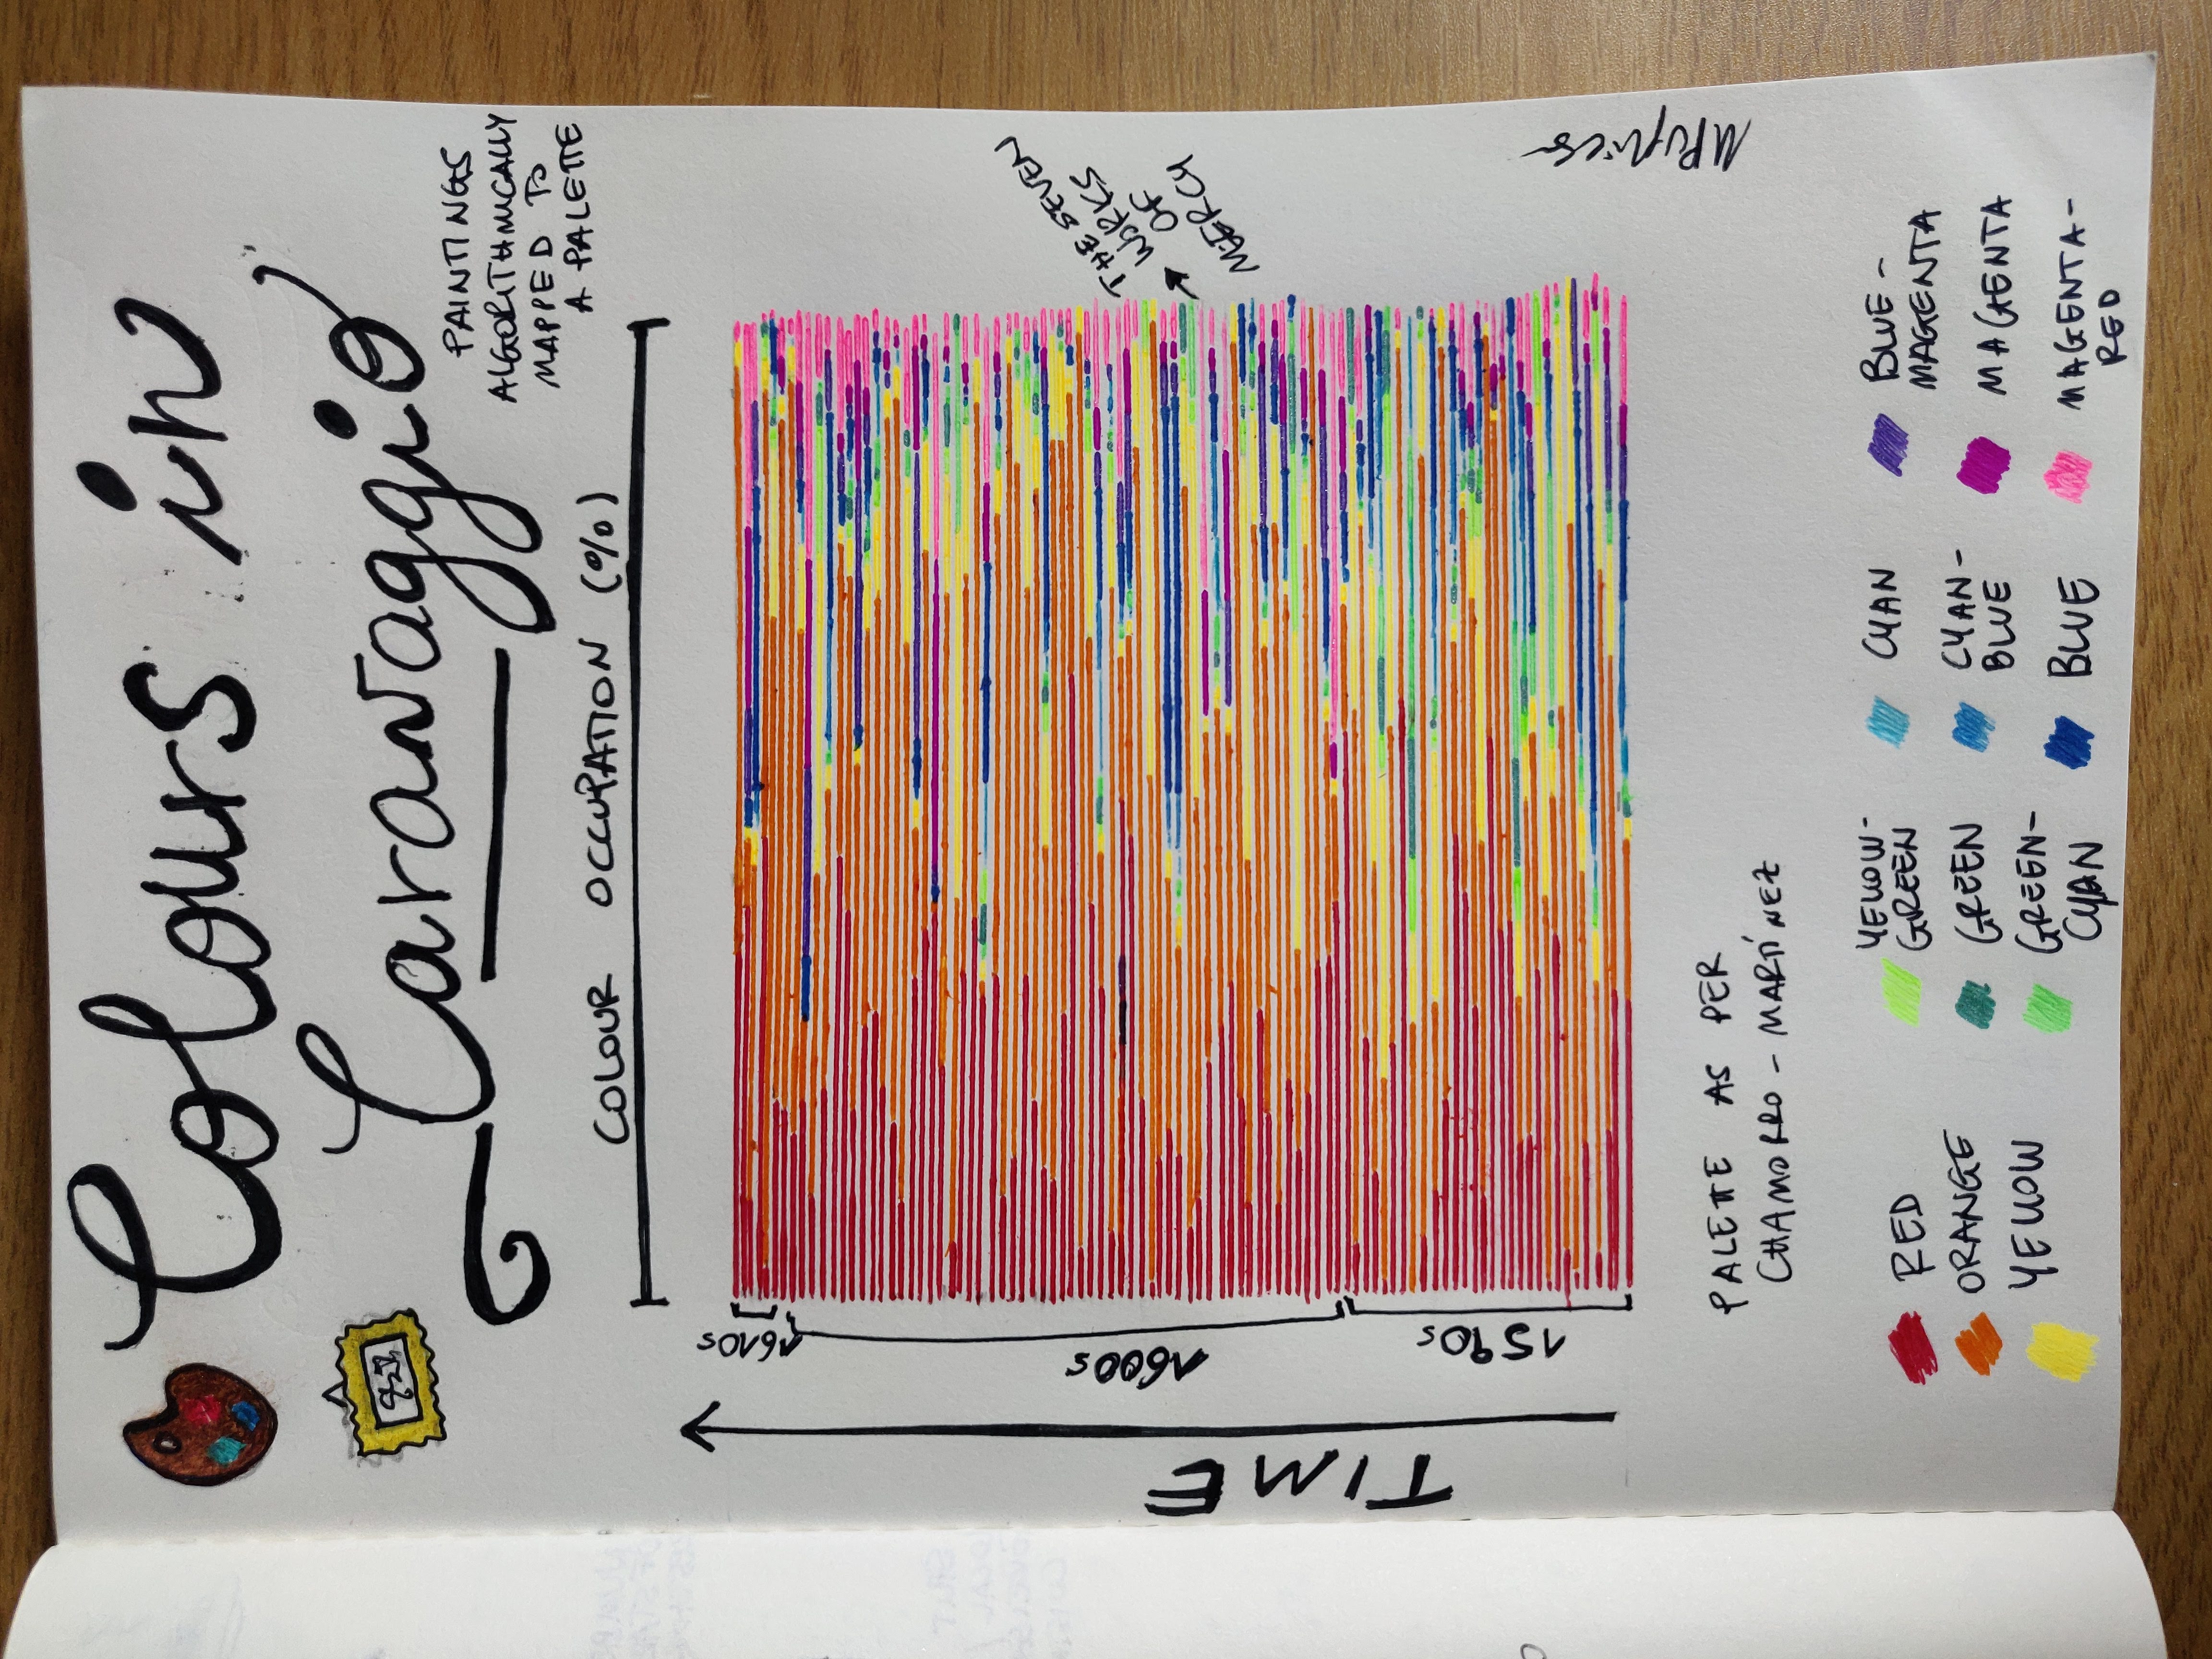 Colours in
Caravaggio
PAINTINGS
ALGORITHMICALLY
MAPPED TO
A PALETTE
COLOUR OCCUPATION (%)
TIME
1610s
1600s
1590s
THE SEVEN
WORKS
OF
MERCY
PALETTE AS PER
CHAMORRO-MARTÍNEZ
RED
ORANGE
YELLOW
YELLOW-
GREEN
GREEN
GREEN-
CYAN
CYAN
CYAN-
BLUE
BLUE
BLUE-
MAGENTA
MAGENTA
MAGENTA-
RED